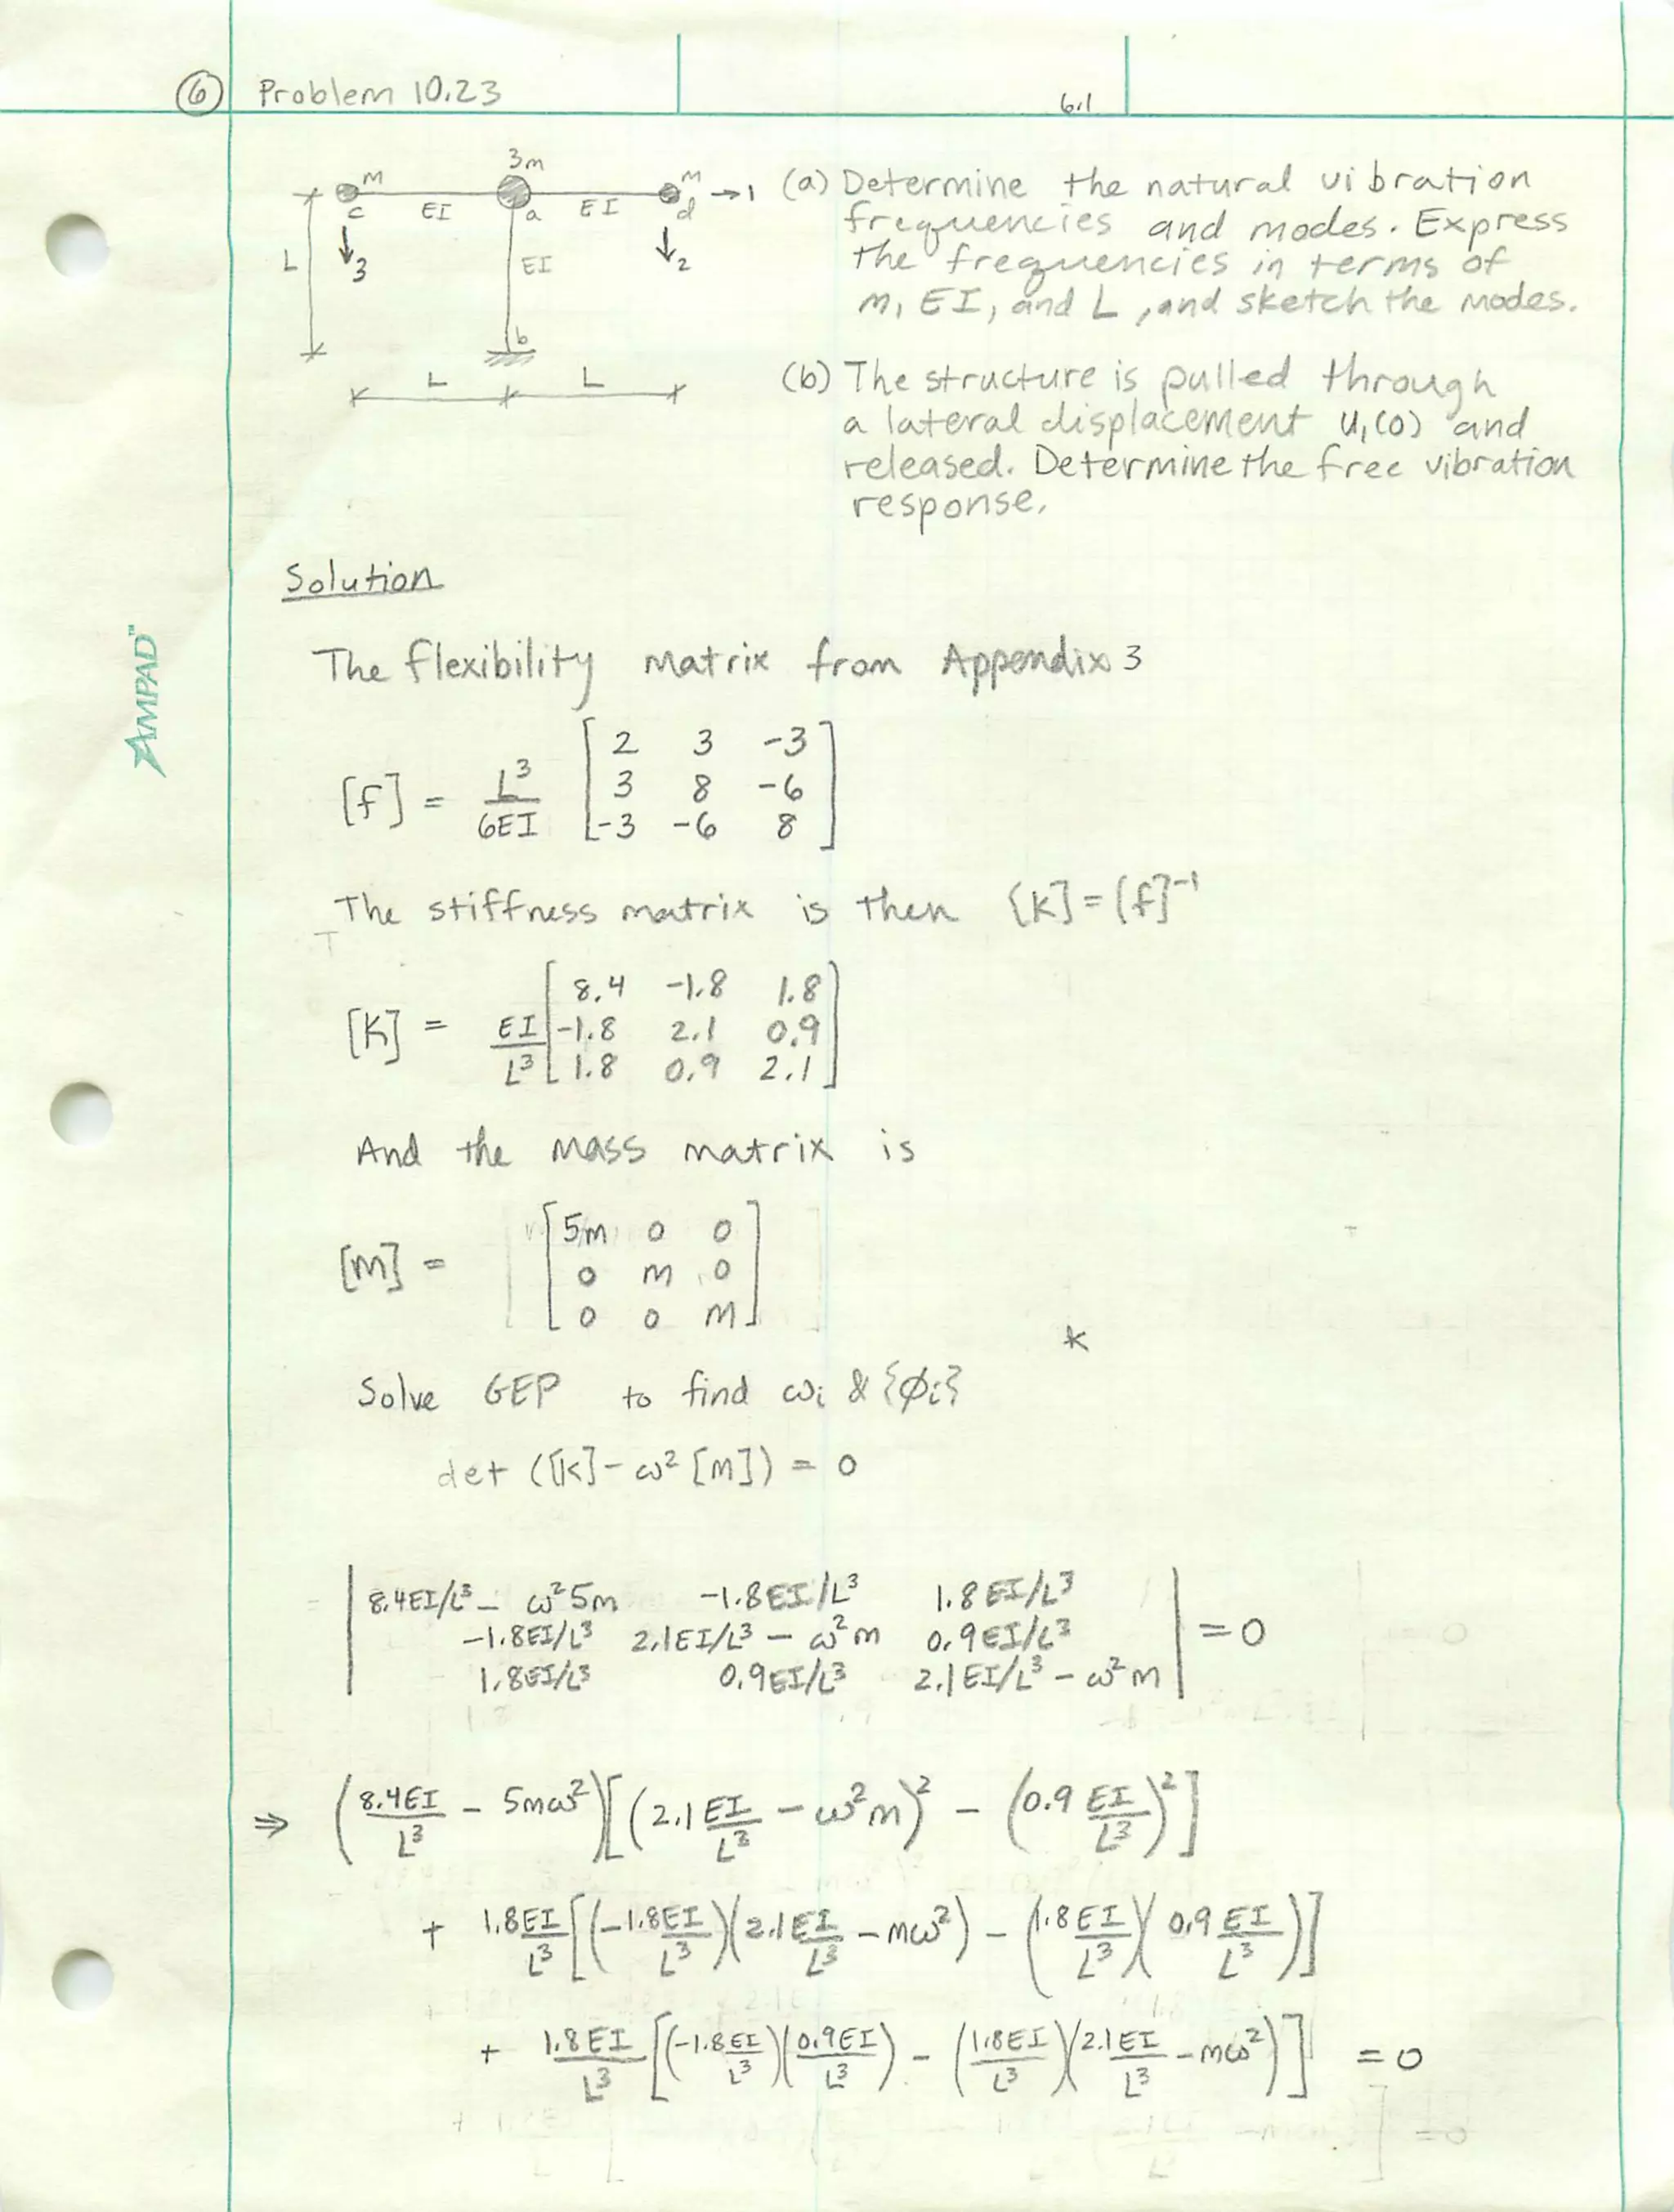 ⑥ Problem 10.23
6.1
3m
m
m → 1
c EI a EI d
↓3 ↓2
L
EI
b
L L
(a) Determine the natural vibration
frequencies and modes. Express
the frequencies in terms of
m, EI, and L, and sketch the modes.
(b) The structure is pulled through
a lateral displacement u₁(0) and
released. Determine the free vibration
response.
Solution
AMPAD™
The flexibility matrix from Appendix 3
[f] = L³/6EI [2 3 -3
3 8 -6
-3 -6 8]
The stiffness matrix is then [k] = [f]⁻¹
[K] = EI/L³ [8.4 -1.8 1.8
-1.8 2.1 0.9
1.8 0.9 2.1]
And the mass matrix is
[m] = [5m 0 0
0 m 0
0 0 m]
*
Solve GEP to find ωi & {φi}
det ([k] - ω² [m]) = 0
| 8.4EI/L³ - ω²5m -1.8EI/L³ 1.8EI/L³ |
| -1.8EI/L³ 2.1EI/L³ - ω²m 0.9EI/L³ | = 0
| 1.8EI/L³ 0.9EI/L³ 2.1EI/L³ - ω²m |
⇒ (8.4EI/L³ - 5mω²)[(2.1 EI/L³ - ω²m)² - (0.9 EI/L³)²]
+ 1.8EI/L³ [(-1.8EI/L³)(2.1EI/L³ - mω²) - (1.8EI/L³)(0.9 EI/L³)]
+ 1.8EI/L³ [(-1.8EI/L³)(0.9EI/L³) - (1.8EI/L³)(2.1EI/L³ - mω²)] = 0